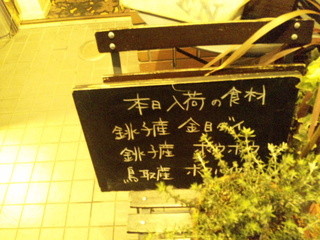 本日入荷の食材
銚子産 金目ダイ
銚子産 ホウボウ
鳥取産